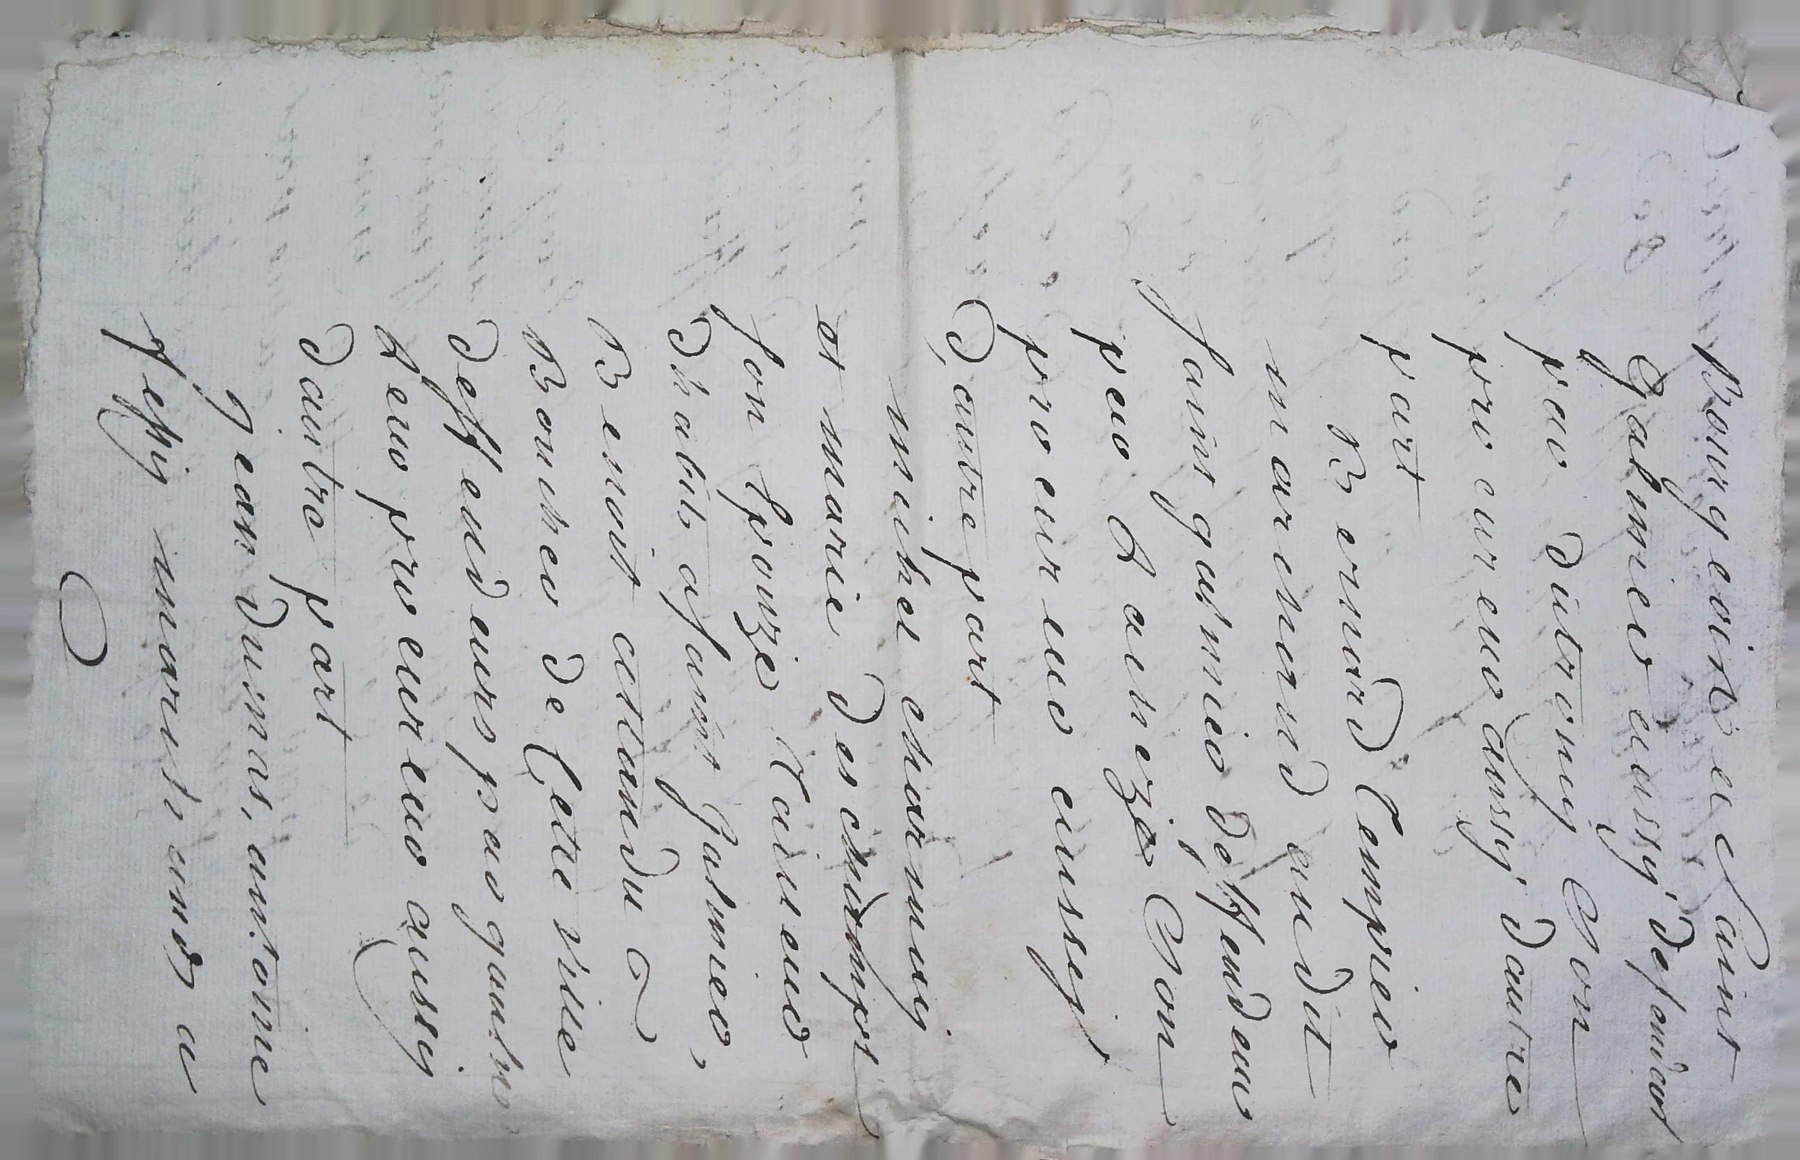 Bourgeois a Saint
galmier aussy defendeur
par dutrony son
procureur aussy dautre
part
Bernard Tempier
marchand audit
saint galmier deffendeur
par Lacheze son
procureur aussy
dautre part
michel charmuy
et marie deschamps
son Epouze Tailleur
dhabits a saint galmier,
Benoit allandu
Boucher de Cette ville
deffendeurs par
Leur procureur aussy
dautre part
jean dumas, antoine
fessy marchands a